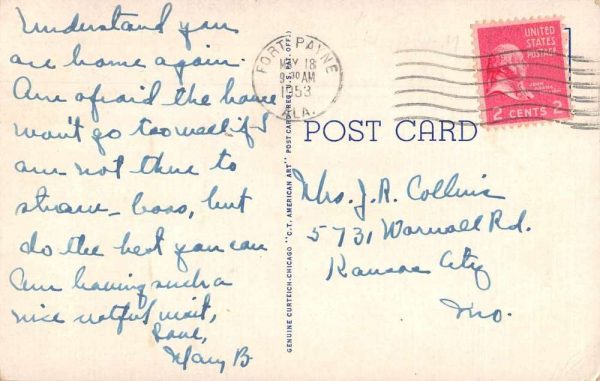 Understand you
are home again.
Am afraid the home
won't go too well if I
am not there to
straw-boss, but
do the best you can
Am having such a
nice restful visit,
Love,
Mary B
GENUINE CURTEICH-CHICAGO "C.T. AMERICAN ART" POST CARD (REG. U.S. PAT. OFF.)
FORT PAYNE
MAY 18
9 AM
1953
ALA.
UNITED
STATES
POSTAGE
2 CENTS 2
POST CARD
Mrs. J. R. Collins
5731 Wornall Rd.
Kansas City
Mo.